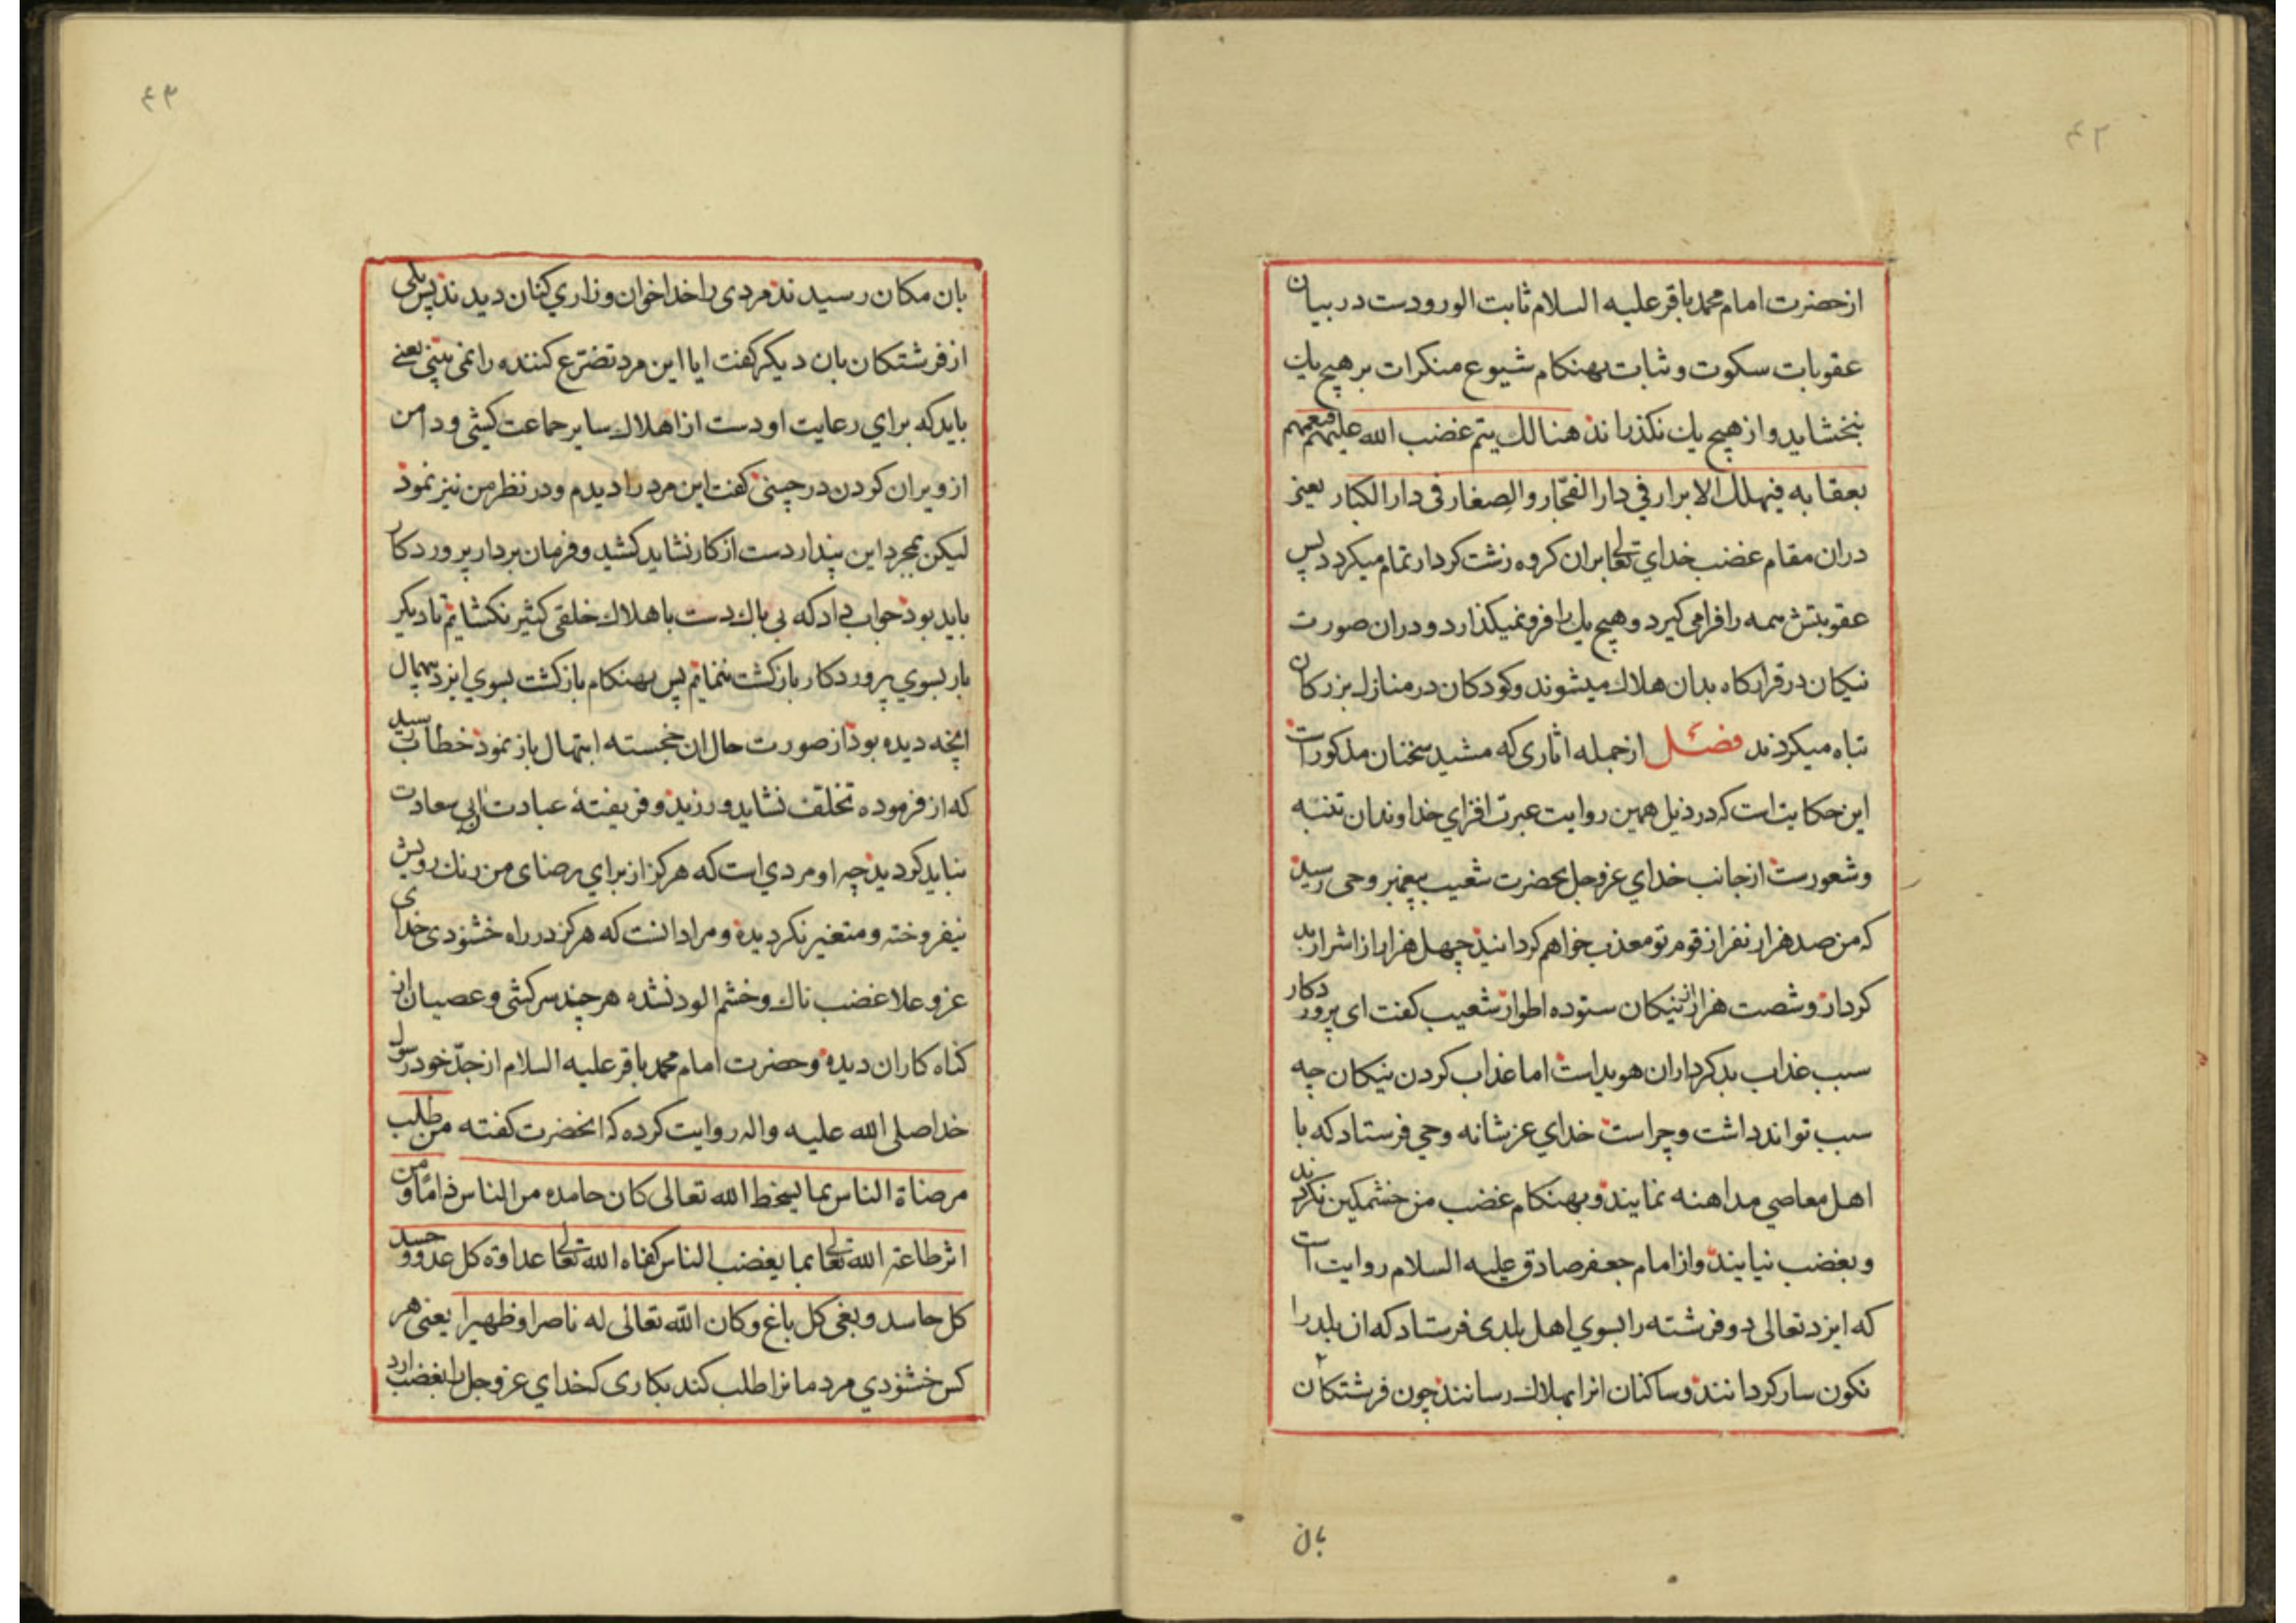 ۴۲
از حضرت امام محمد باقر علیه السلام ثابت الورودست در بیان
عقوبات سکوت و ثبات بهنکام شیوع منکرات بر هیچ یک
نبخشاید و از هیچ یک نکذراند هنالک یتم غضب الله علیهم فیعمهم
بعقابه فیهلک الابرار فی دار الفجّار والصغار فی دار الکبار یعنی
دران مقام غضب خدای تعالی بران کروه زشت کردار تمام میکردد پس
عقوبتش همه را فرا می کیرد و هیچ یک را فرو نمیکذارد و دران صورت
نیکان در قرارکاه بدان هلاک میشوند و کودکان در منازل بزرکان
تباه میکردند فصل از جمله اثاری که مشید سخنان مذکور است
این حکایت است که در ذیل همین روایت عبرت افزای خداوندان تنبّه
و شعورست از جانب خدای عز و جل بحضرت شعیب پیغمبر وحی رسید
که من صد هزار نفر از قوم تو معذب خواهم کردانید چهل هزار از اشرار بد
کردار و شصت هزار از نیکان ستوده اطوار شعیب کفت ای پروردکار
سبب عذاب بدکرداران هویداست اما عذاب کردن نیکان چه
سبب تواند داشت و چراست خدای عز شانه وحی فرستاد که با
اهل معاصی مداهنه نمایند و بهنکام غضب من خشمکین نکردند
و بغضب نیایند و از امام جعفر صادق علیه السلام روایت است
که ایزد تعالی دو فرشته را بسوی اهل بلدی فرستاد که ان بلد را
نکون سار کردانند و ساکنان انرا بهلاک رسانند چون فرشتکان
بان
۴۳
بان مکان رسیدند مردی را خداخوان و زاری کنان دیدند پس یکی
از فرشتکان بان دیکر کفت ایا این مرد تضرّع کننده را نمی بینی یعنی
باید که برای رعایت او دست از اهلاک سایر جماعت کشی و دامن
از ویران کردن درچینی کفت این مرد را دیدم و در نظر من نیز نمود
لیکن بمجرد این پندار دست از کار نشاید کشید و فرمان بردار پروردکار
باید بود جواب داد که بی باک دست باهلاک خلقی کثیر نکشایم تا دیکر
بار بسوی پروردکار بازکشت ننمایم پس بهنکام بازکشت بسوی ایزد بیهمال
انچه دیده بود از صورت حال ان خجسته ابتهال باز نمود خطاب رسید
که از فرموده تخلف نشاید ورزید و فریفتهٔ عبادت ان بی سعادت
نباید کردید چه او مردی است که هرکز از برای رضای من رنک رویش
نیفروخته و متغیر نکردیده و مراد انست که هرکز در راه خشنودی خدای
عز و علا غضب ناک و خشم الود نشده هر چند سرکشی و عصیان از
کناه کاران دیده و حضرت امام محمد باقر علیه السلام از جدّ خود رسول
خدا صلی الله علیه واله روایت کرده که انحضرت کفته من طلب
مرضاة الناس بما یسخط الله تعالی کان حامده من الناس ذامّا و من
اثر طاعة الله تعالی بما یغضب الناس کفاه الله تعالی عداوة کل عدو و حسد
کل حاسد و بغی کل باغ و کان الله تعالی له ناصرا و ظهیرا یعنی هر
کس خشنودی مردمانرا طلب کند بکاری که خدای عز و جل را بغضب ارد